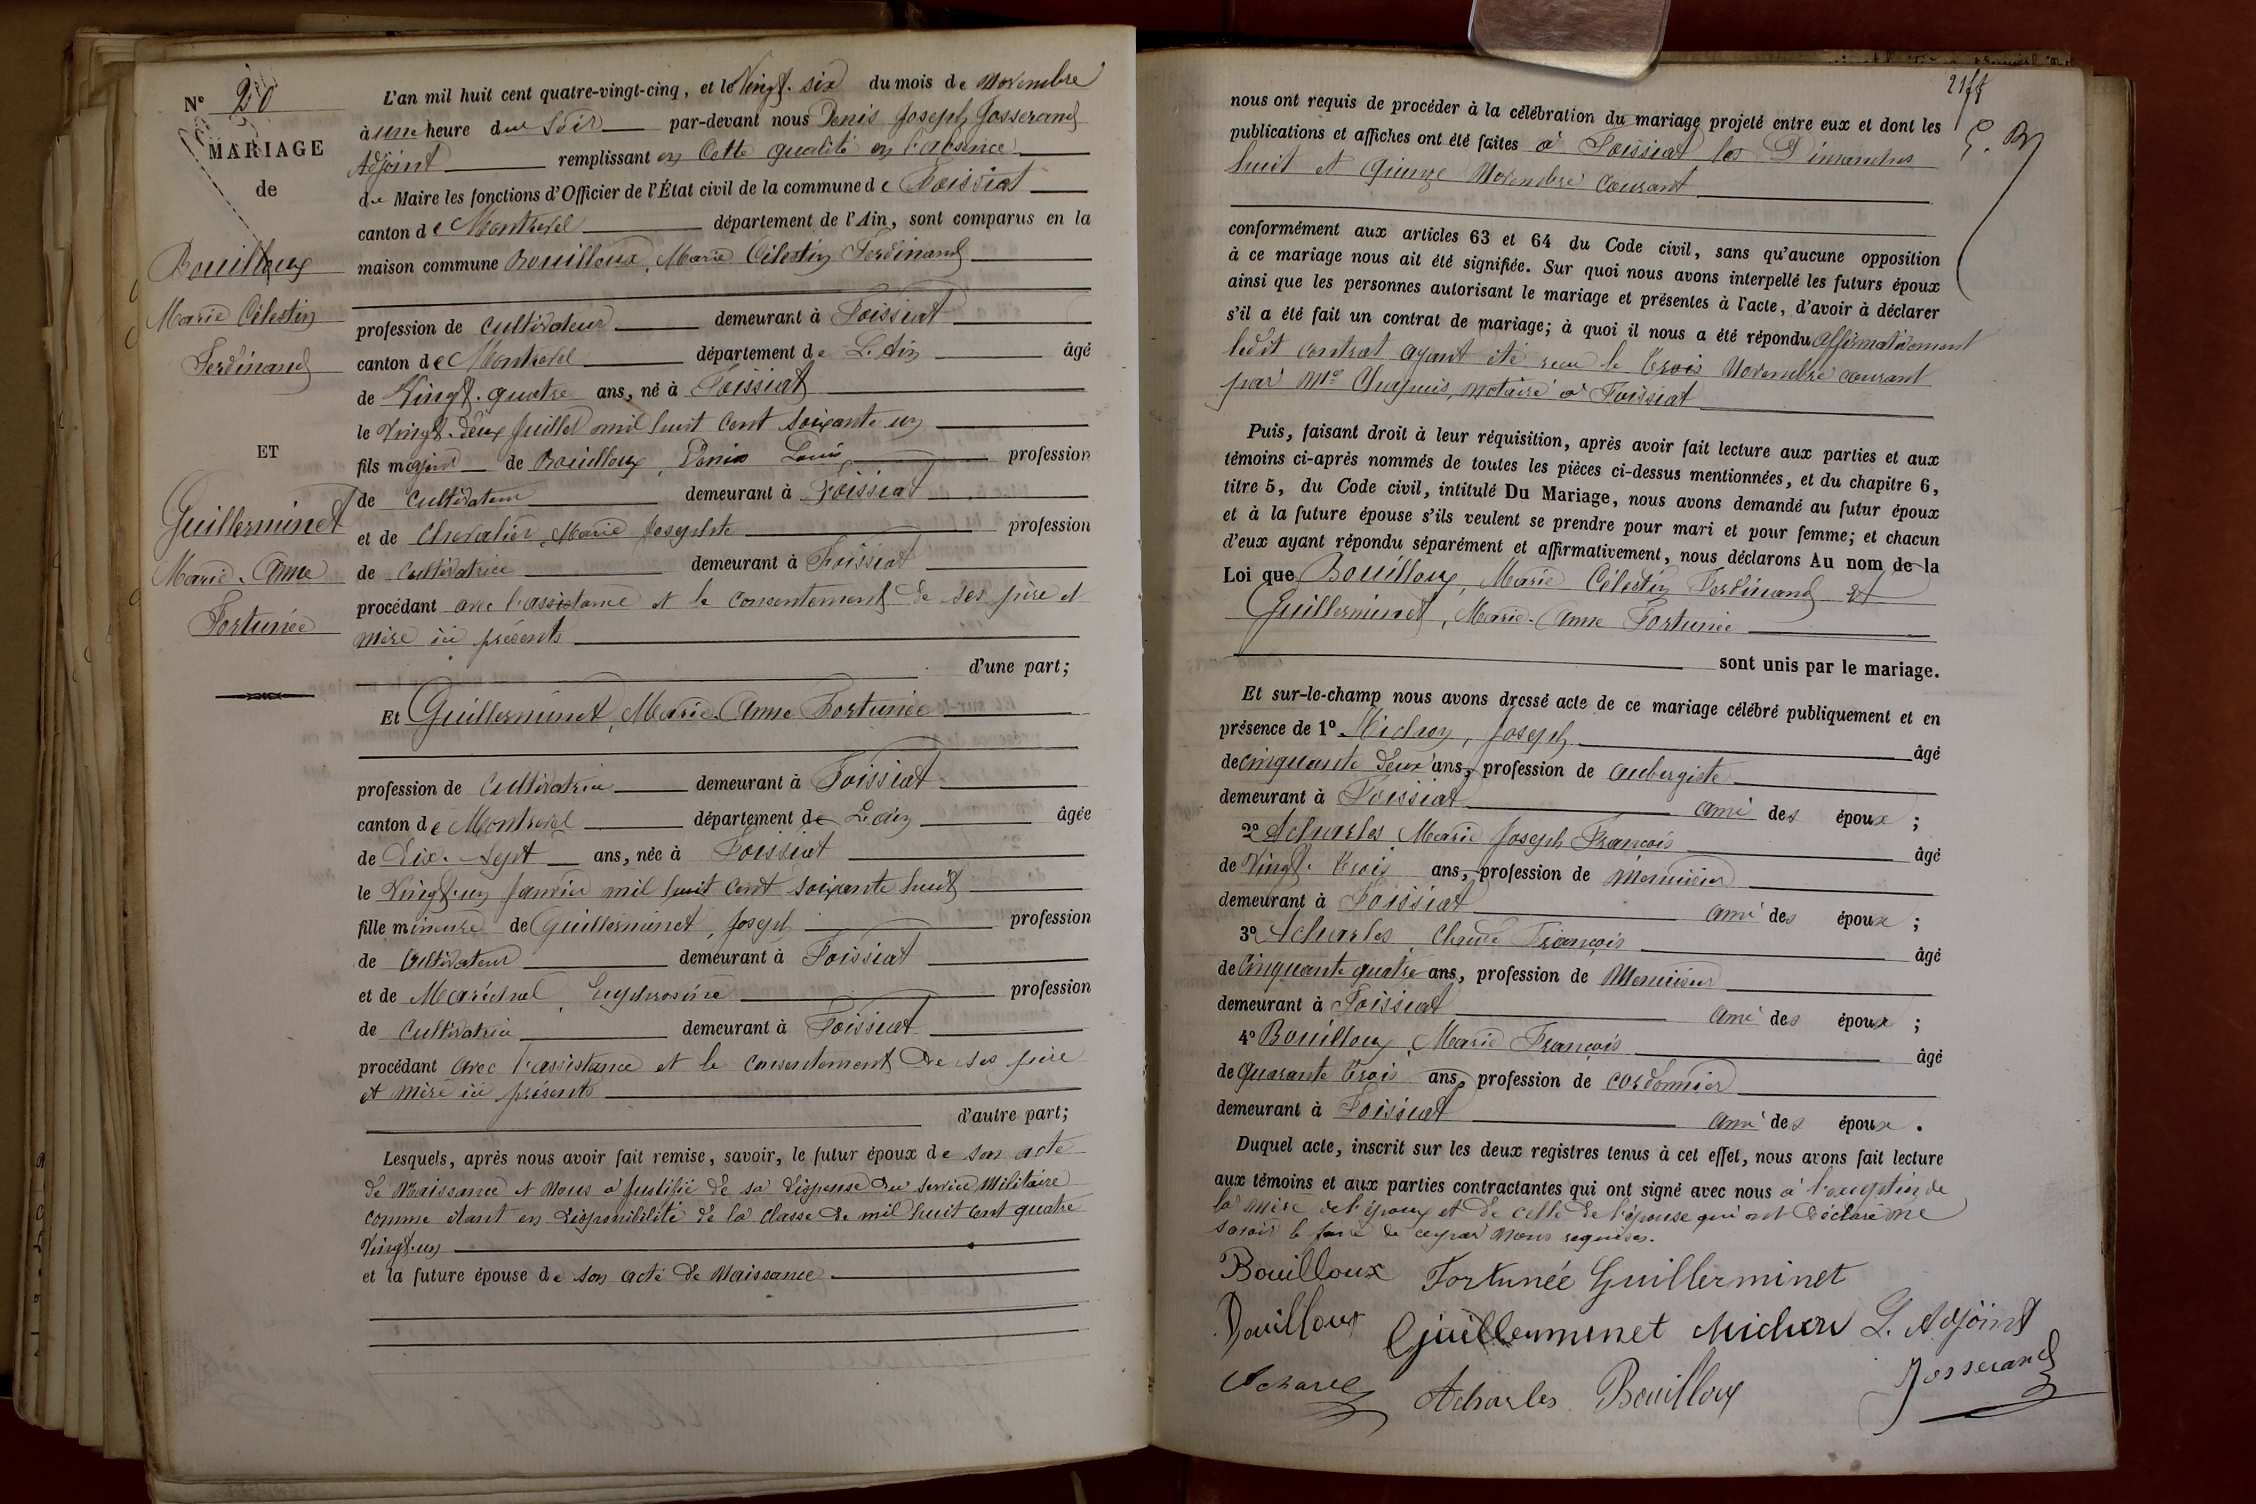 N° 20
MARIAGE
de
Bouilloux
Marie Célestin
Ferdinand
ET
Guillerminet
Marie-Anne
Fortunée
L'an mil huit cent quatre-vingt-cinq, et le Vingt-six du mois de Novembre
à une heure du Soir par-devant nous Denis Joseph Josserand
Adjoint remplissant en Cette qualité en l'absence
de Maire les fonctions d'Officier de l'État civil de la commune de Foissiat
canton de Montrevel département de l'Ain, sont comparus en la
maison commune Bouilloux, Marie Célestin Ferdinand
profession de Cultivateur demeurant à Foissiat
canton de Montrevel département de L'Ain âgé
de Vingt-quatre ans, né à Foissiat
le Vingt-deux Juillet mil huit cent soixante un
fils majeur de Bouilloux, Denis Louis profession
de Cultivateur demeurant à Foissiat
et de Chevalier, Marie Josephte profession
de Cultivatrice demeurant à Foissiat
procédant avec l'assistance et le consentement de ses père et
mère ici présents
d'une part;
Et Guillerminet, Marie-Anne Fortunée
profession de Cultivatrice demeurant à Foissiat
canton de Montrevel département de L'ain âgée
de Dix-Sept ans, née à Foissiat
le Vingt-un Janvier mil huit cent soixante huit
fille mineure de Guillerminet, Joseph profession
de Cultivateur demeurant à Foissiat
et de Maréchal, Euphrosine profession
de Cultivatrice demeurant à Foissiat
procédant avec l'assistance et le consentement de ses père
et mère ici présents
d'autre part;
Lesquels, après nous avoir fait remise, savoir, le futur époux de son acte
de Naissance et Nous a Justifié de sa dispense du service Militaire
comme étant en disponibilité de la Classe de mil huit cent quatre
Vingt-un
et la future épouse de son acte de Naissance
21
nous ont requis de procéder à la célébration du mariage projeté entre eux et dont les
publications et affiches ont été faites à Foissiat les Dimanches
huit et quinze Novembre courant
conformément aux articles 63 et 64 du Code civil, sans qu'aucune opposition
à ce mariage nous ait été signifiée. Sur quoi nous avons interpellé les futurs époux
ainsi que les personnes autorisant le mariage et présentes à l'acte, d'avoir à déclarer
s'il a été fait un contrat de mariage; à quoi il nous a été répondu affirmativement
ledit contrat ayant été reçu le trois Novembre courant
par Me Chapuis, notaire à Foissiat
Puis, faisant droit à leur réquisition, après avoir fait lecture aux parties et aux
témoins ci-après nommés de toutes les pièces ci-dessus mentionnées, et du chapitre 6,
titre 5, du Code civil, intitulé Du Mariage, nous avons demandé au futur époux
et à la future épouse s'ils veulent se prendre pour mari et pour femme; et chacun
d'eux ayant répondu séparément et affirmativement, nous déclarons Au nom de la
Loi que Bouilloux, Marie Célestin Ferdinand et
Guillerminet, Marie-Anne Fortunée
sont unis par le mariage.
Et sur-le-champ nous avons dressé acte de ce mariage célébré publiquement et en
présence de 1° Michon, Joseph âgé
de cinquante deux ans, profession de aubergiste
demeurant à Foissiat ami des époux;
2° Acharles, Marie Joseph François âgé
de Vingt-trois ans, profession de Menuisier
demeurant à Foissiat ami des époux;
3° Acharles, Claude François âgé
de Cinquante quatre ans, profession de Menuisier
demeurant à Foissiat ami des époux;
4° Bouilloux, Marie François âgé
de quarante trois ans, profession de cordonnier
demeurant à Foissiat ami des époux.
Duquel acte, inscrit sur les deux registres tenus à cet effet, nous avons fait lecture
aux témoins et aux parties contractantes qui ont signé avec nous à l'exception de
la mère de l'époux et de celle de l'épouse qui ont déclaré ne
savoir le faire de ce par Nous requises.
Bouilloux Fortunée Guillerminet
Bouilloux Guillerminet Michon L'Adjoint
Acharles Acharles Bouilloux Josserand